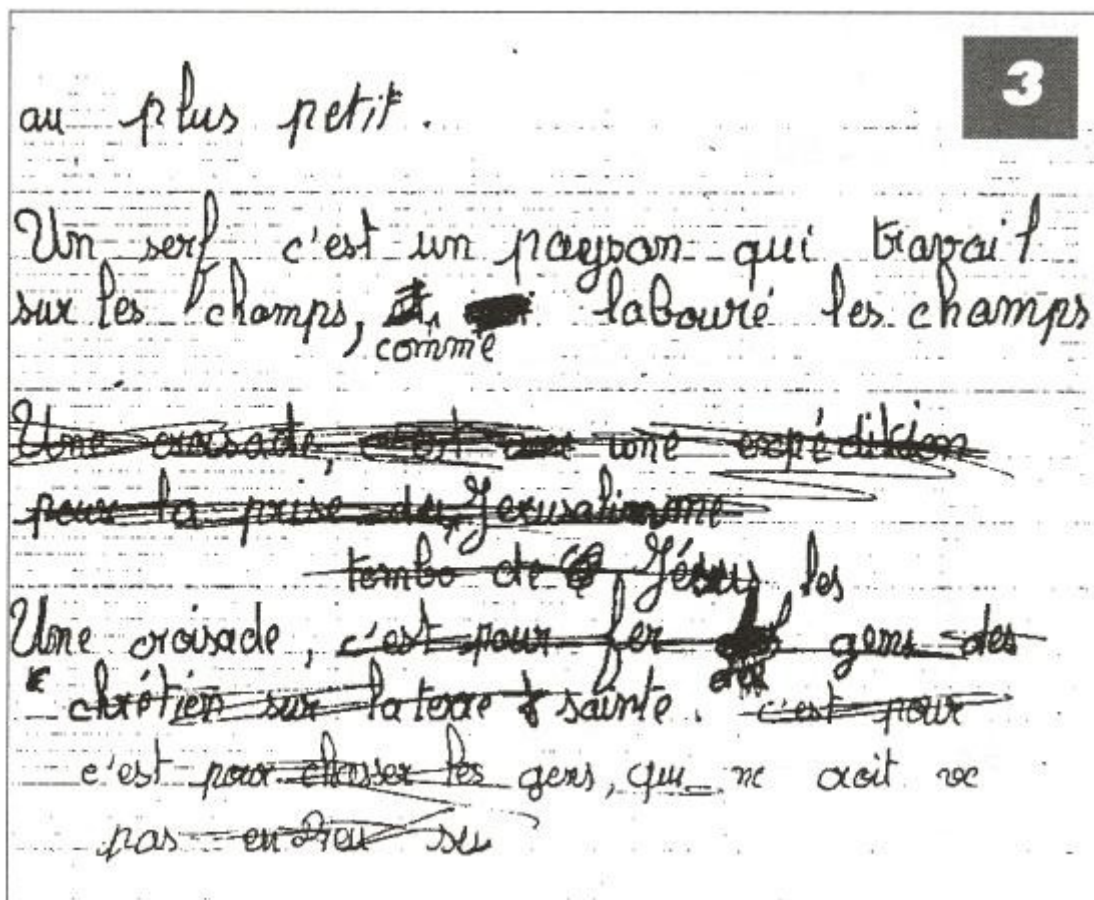 3
au plus petit.
Un serf, c'est un paysan qui travail
sur les champs, labouré les champs
comme
Une croisade, c'est une expédition
pour la prise de Jerusalemme
tombo de Jésus les
Une croisade, c'est pour fer gens des
chrétien sur la terre sainte. c'est pour
c'est pour chasser les gens, qui ne croit
pas en Dieu su